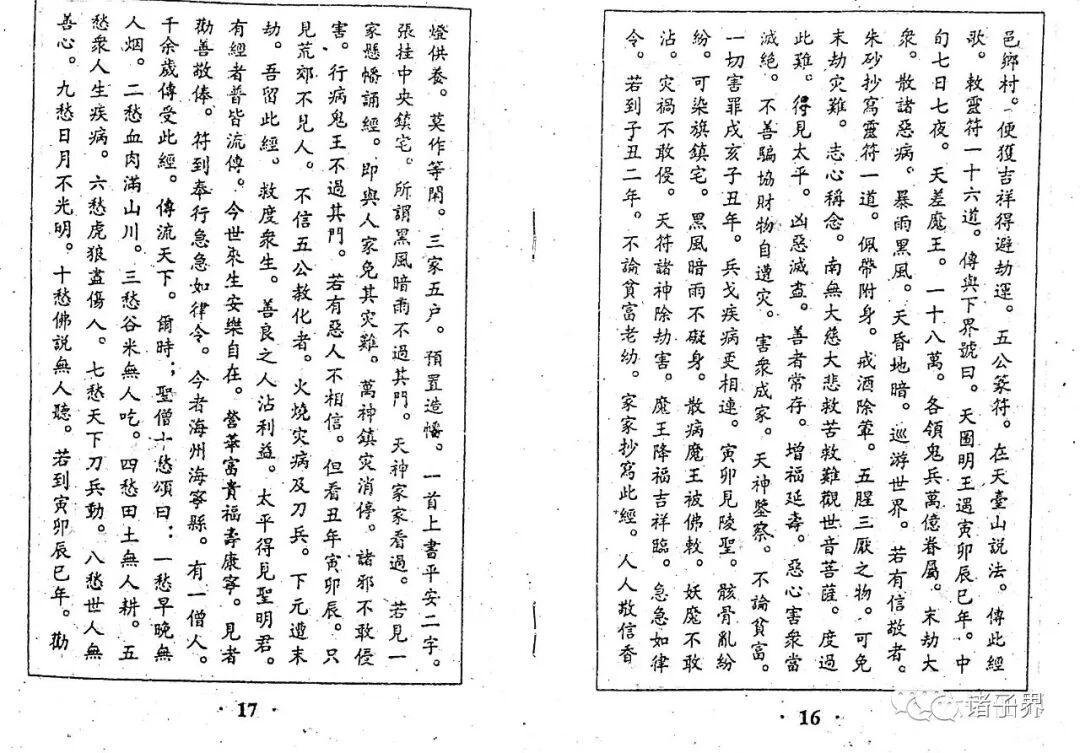 邑鄉村。便獲吉祥得避劫運。五公菩符。在天臺山説法。傳此經
歌。敕靈符一十六道。傳與下界號曰。天圖明王遇寅卯辰巳年。中
旬七日七夜。天差魔王。一十八萬。各領鬼兵萬億眷屬。末劫大
衆。散諸惡病。暴雨黑風。天昏地暗。巡游世界。若有信敬者。
朱砂抄寫靈符一道。佩帶附身。戒酒除葷。五腥三厭之物。可免
末劫灾難。志心稱念。南無大慈大悲救苦救難觀世音菩薩。度過
此難。得見太平。凶惡滅盡。善者常存。增福延壽。惡心害衆當
滅絶。不善騙協財物自遭灾。害衆成家。天神鑒察。不論貧富。
一切害罪戌亥子丑年。兵戈疾病更相連。寅卯見陵聖。骸骨亂紛
紛。可染旗鎮宅。黑風暗雨不礙身。散病魔王被佛敕。妖魔不敢
沾。灾禍不敢侵。天符諸神除劫害。魔王降福吉祥臨。急急如律
令。若到子丑二年。不論貧富老幼。家家抄寫此經。人人敬信香
·16·
燈供養。莫作等閑。三家五户。預置造幡。一首上書平安二字。
張挂中央鎮宅。所謂黑風暗雨不過其門。天神家家看過。若見一
家懸幡誦經。即與人家免其灾難。萬神鎮灾消停。諸邪不敢侵
害。行病鬼王不過其門。若有惡人不相信。但看丑年寅卯辰。只
見荒郊不見人。不信五公教化者。火燒灾病及刀兵。下元遭末
劫。吾留此經。救度衆生。善良之人沾利益。太平得見聖明君。
有經者普皆流傳。今世來生安樂自在。營華富貴福壽康寧。見者
勸善敬俸。符到奉行急急如律令。今者海州海寧縣。有一僧人。
千余歲傳受此經。傳流天下。爾時；聖僧十愁頌曰：一愁早晚無
人烟。二愁血肉滿山川。三愁谷米無人吃。四愁田土無人耕。五
愁衆人生疾病。六愁虎狼盡傷人。七愁天下刀兵動。八愁世人無
善心。九愁日月不光明。十愁佛説無人聽。若到寅卯辰巳年。勸
·17·
诸子界